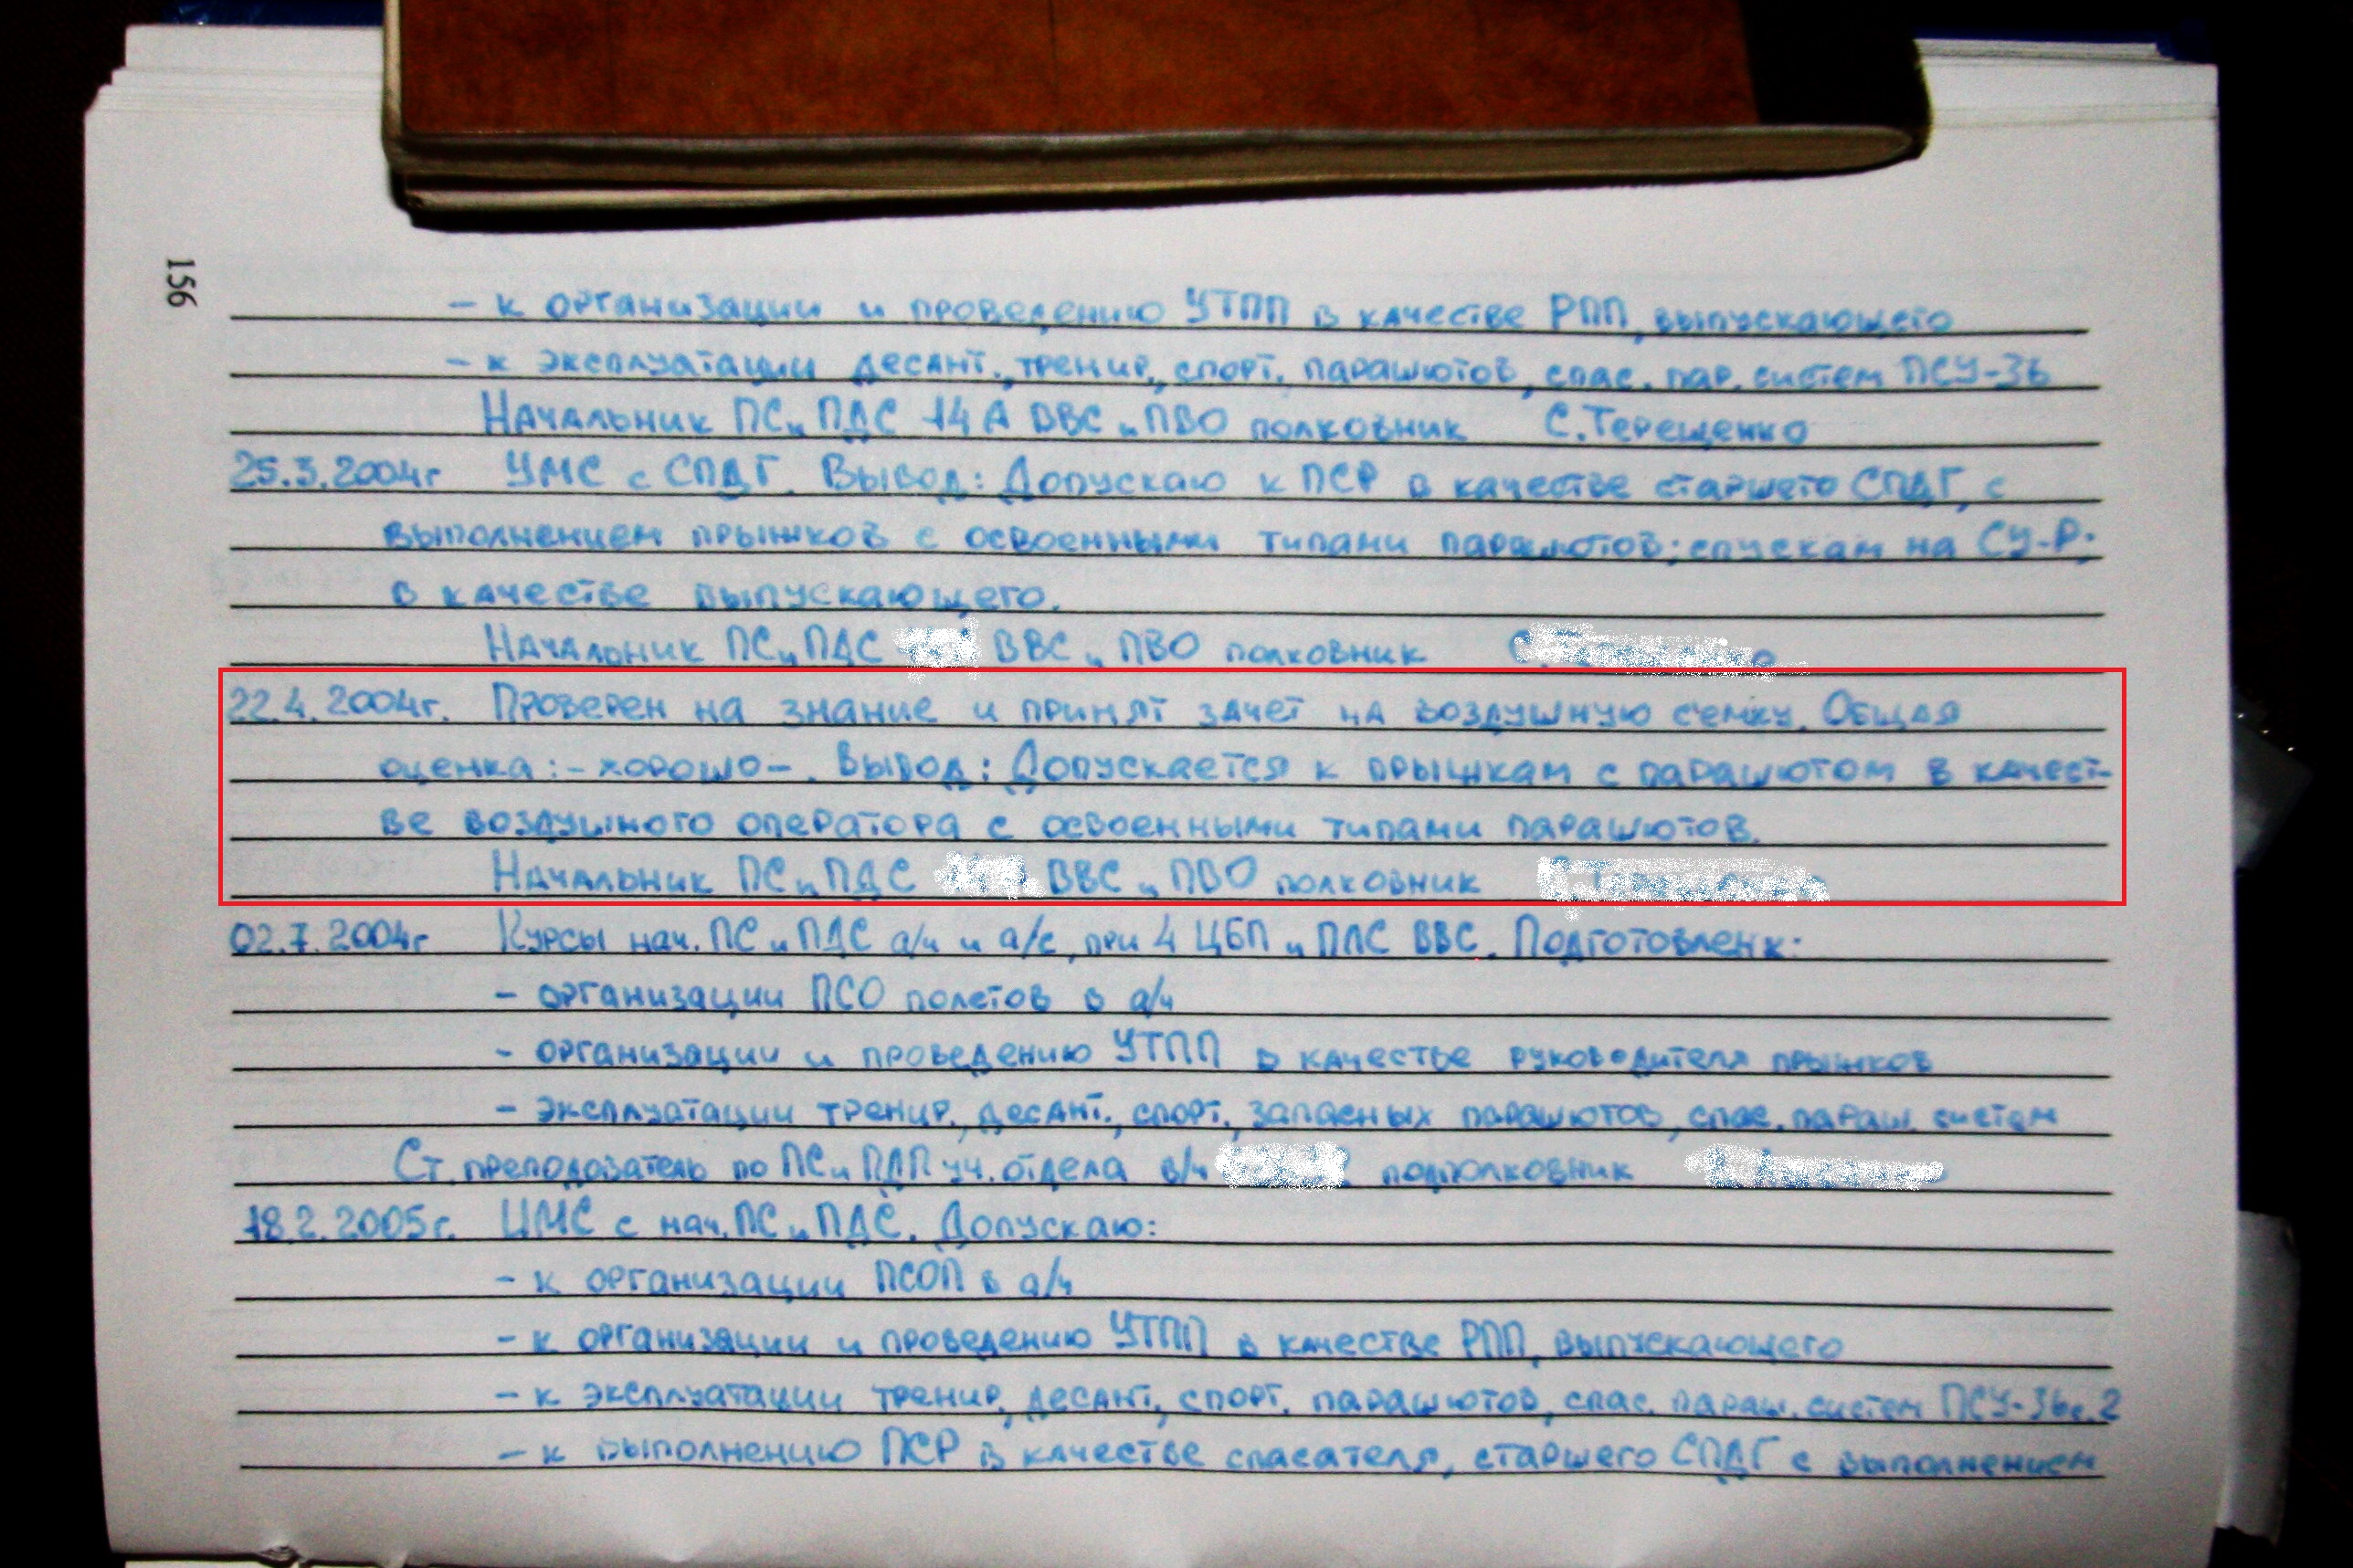 156
- к организации и проведению УТПП в качестве РПП, выпускающего
- к эксплуатации десант., тренир., спорт. парашютов, спас. пар. систем ПСУ-36
Начальник ПС и ПДС 14 А ВВС и ПВО полковник С. Терещенко
25.3.2004г УМС с СПДГ. Вывод: Допускаю к ПСР в качестве старшего СПДГ, с
выполнением прыжков с освоенными типами парашютов; спускам на СУ-Р;
в качестве выпускающего.
Начальник ПС и ПДС ВВС и ПВО полковник
22.4.2004г. Проверен на знание и принят зачет на воздушную семку. Общая
оценка: -хорошо-. Вывод: Допускается к прыжкам с парашютом в качест-
ве воздушного оператора с освоенными типами парашютов.
Начальник ПС и ПДС ВВС и ПВО полковник
02.7.2004г Курсы нач. ПС и ПДС а/ч и а/с, при 4 ЦБП и ПЛС ВВС. Подготовлен к:
- организации ПСО полетов в а/ч
- организации и проведению УТПП в качестве руководителя прыжков
- эксплуатации тренир., десант., спорт., запасных парашютов, спас. параш. систем
Ст. преподователь по ПС и ПДП уч. отдела в/ч подполковник
18.2.2005г. УМС с нач. ПС и ПДС. Допускаю:
- к организации ПСОП в а/ч
- к организации и проведению УТПП в качестве РПП, выпускающего
- к эксплуатации тренир, десант, спорт. парашютов, спас. параш. систем
- к выполнению ПСР в качестве спасателя, старшего СПДГ с выполнением